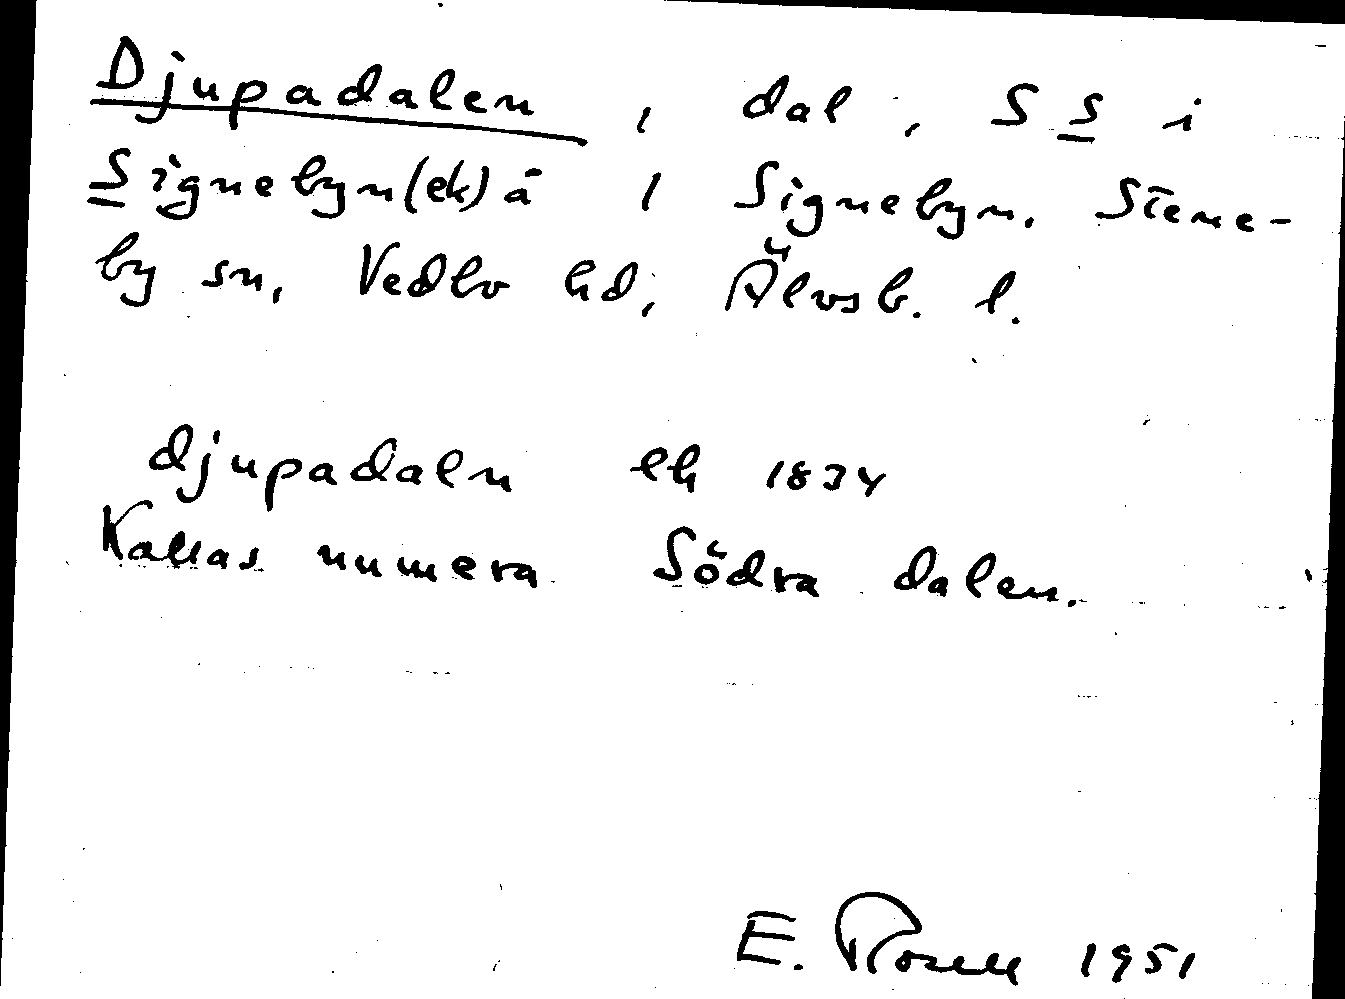 Djupadalen, dal, S S i
Signebyn(ek)ä / Signebyn. Stene-
by sn, Vedbo hd, Älvsb. l.
djupadaln ek 1834
Kallas numera Södra dalen.
E. Rosell 1951